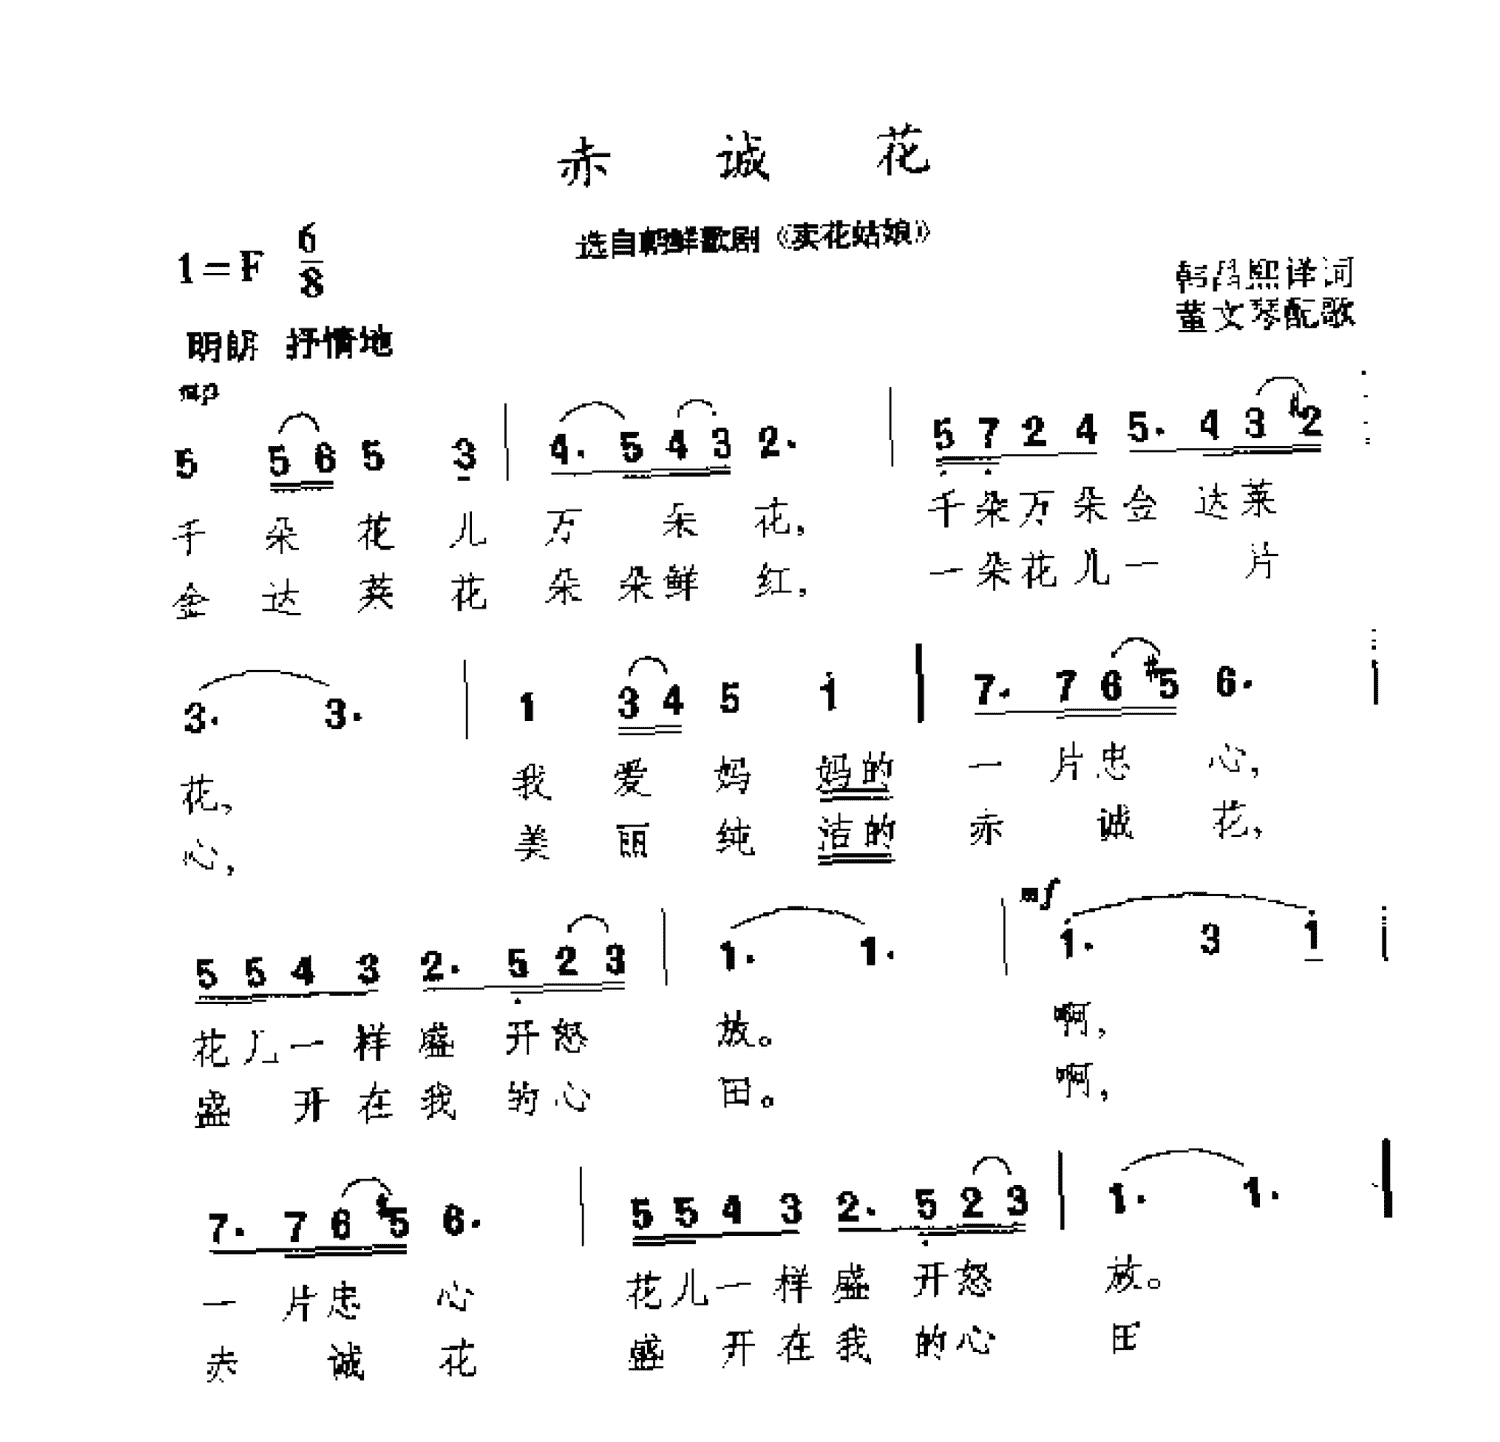 赤 诚 花
选自朝鲜歌剧《卖花姑娘》
1=F 6/8
韩昌熙译词
董文琴配歌
明朗 抒情地
mp
5 5 6 5 3 | 4. 5 4 3 2. | 5 7 2 4 5. 4 3 #2
千 朵 花 儿 万 朵 花, 千朵万朵金达莱
金 达 莱 花 朵 朵鲜 红, 一朵花儿一 片
3. 3. | 1 3 4 5 1 | 7. 7 6 #5 6. |
花, 我 爱 妈 妈的 一 片忠 心,
心, 美 丽 纯 洁的 赤 诚 花,
mf
5 5 4 3 2. 5 2 3 | 1. 1. | 1. 3 1 |
花儿一样盛 开怒 放。 啊,
盛 开在我 的心 田。 啊,
7. 7 6 #5 6. | 5 5 4 3 2. 5 2 3 | 1. 1. |
一 片忠 心 花儿一样盛 开怒 放。
赤 诚 花 盛 开在我 的心 田